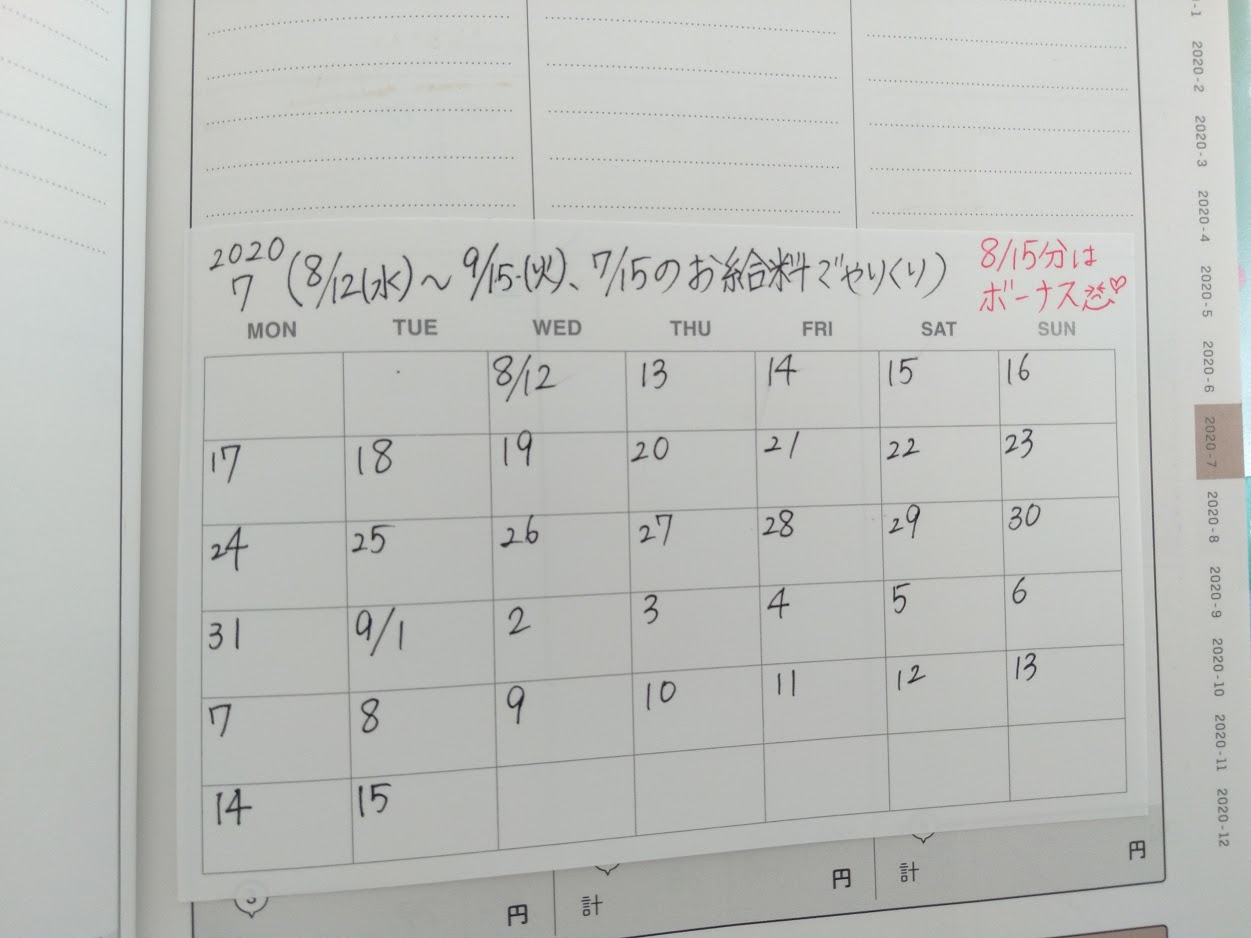 2020
7 (8/12(水)〜9/15(火)、7/15のお給料でやりくり)
8/15分は
ボーナス
MON TUE WED THU FRI SAT SUN
8/12 13 14 15 16
17 18 19 20 21 22 23
24 25 26 27 28 29 30
31 9/1 2 3 4 5 6
7 8 9 10 11 12 13
14 15
円 計 円 計 円
2020-2
2020-3
2020-4
2020-5
2020-6
2020-7
2020-8
2020-9
2020-10
2020-11
2020-12